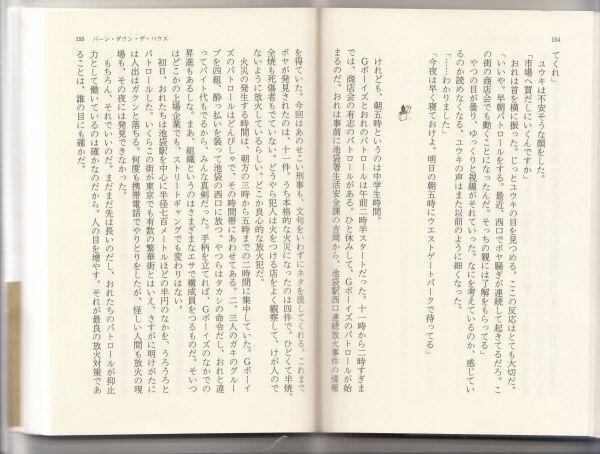 154
てくれ」
ユウキは不安そうな顔をした。
「市場へ買だしにいくんですか」
おれは首を横に振った。じっとユウキの目を見つめる。ここの反応はとても大切だ。
「いいや。早朝パトロールをする。最近、西口でボヤ騒ぎが連続して起きてるだろ。こ
の街の商店会でも動くことになったんだ。そっちの親には了解をもらってる」
やつの目が曇り、ゆっくりと視線がそれていった。なにを考えているのか、感じてい
るのか読めなくなる。ユウキの声はまた以前のように細くなった。
「……わかりました」
「今夜は早く寝ておけよ。明日の朝五時にウエストゲートパークで待ってる」
けれども、朝五時というのは中学生時間。
Gボーイズとおれのパトロールは午前二時半スタートだった。十一時から二時すぎま
では、商店会の有志のパトロールがある。ひと休みして、Gボーイズのパトロールが始
まるのだった。おれは事前に池袋署生活安全課の吉岡から、池袋駅西口連続放火事件の情報
155 バーン・ダウン・ザ・ハウス
を得ていた。今回はあのせこい刑事も、文句をいわずにネタを流してくれる。これまで
ボヤが発見されたのは、十一件。うち本格的な火災になったのは四件で、ひどくて半焼。
全焼も死傷者もでていない。どうやら犯人は火をつける店をよく観察して、けが人ので
ないように放火しているらしい。どこか良心的な放火犯だ。
火災の発生する時間は、朝方の三時から五時までの二時間に集中していた。Gボーイ
ズのパトロールはどんぴしゃで、その時間帯にあわせてある。二、三人のガキのグルー
プを四組、酔っ払いを装って池袋の西口に放つ。やつらはタカシの命令だし、おれと違
ってバイト代もでるから、みんな真剣だった。手柄を立てれば、Gボーイズのなかでの
昇進もあるしな。まあ、組織というのはさまざまなエサで構成員をつるものだ。そいつ
はどこかの上場企業でも、ストリートギャングでも変わりはない。
初日、おれたちは池袋駅を中心に半径七百メートルほどの半円のなかを、うろうろと
パトロールした。いくらこの街が東京でも有数の繁華街とはいえ、さすがに明けがたに
は人出はガクンと落ちる。何度も携帯電話でやりとりをしたが、怪しい人間も放火の現
場も、その夜には発見できなかった。
もちろん、それでいいのだ。まだまだ先は長いのだし、おれたちのパトロールが抑止
力として働いているのは確かなのだから。人の目を増やす。それが最良の放火対策であ
ることは、誰の目にも確かだ。